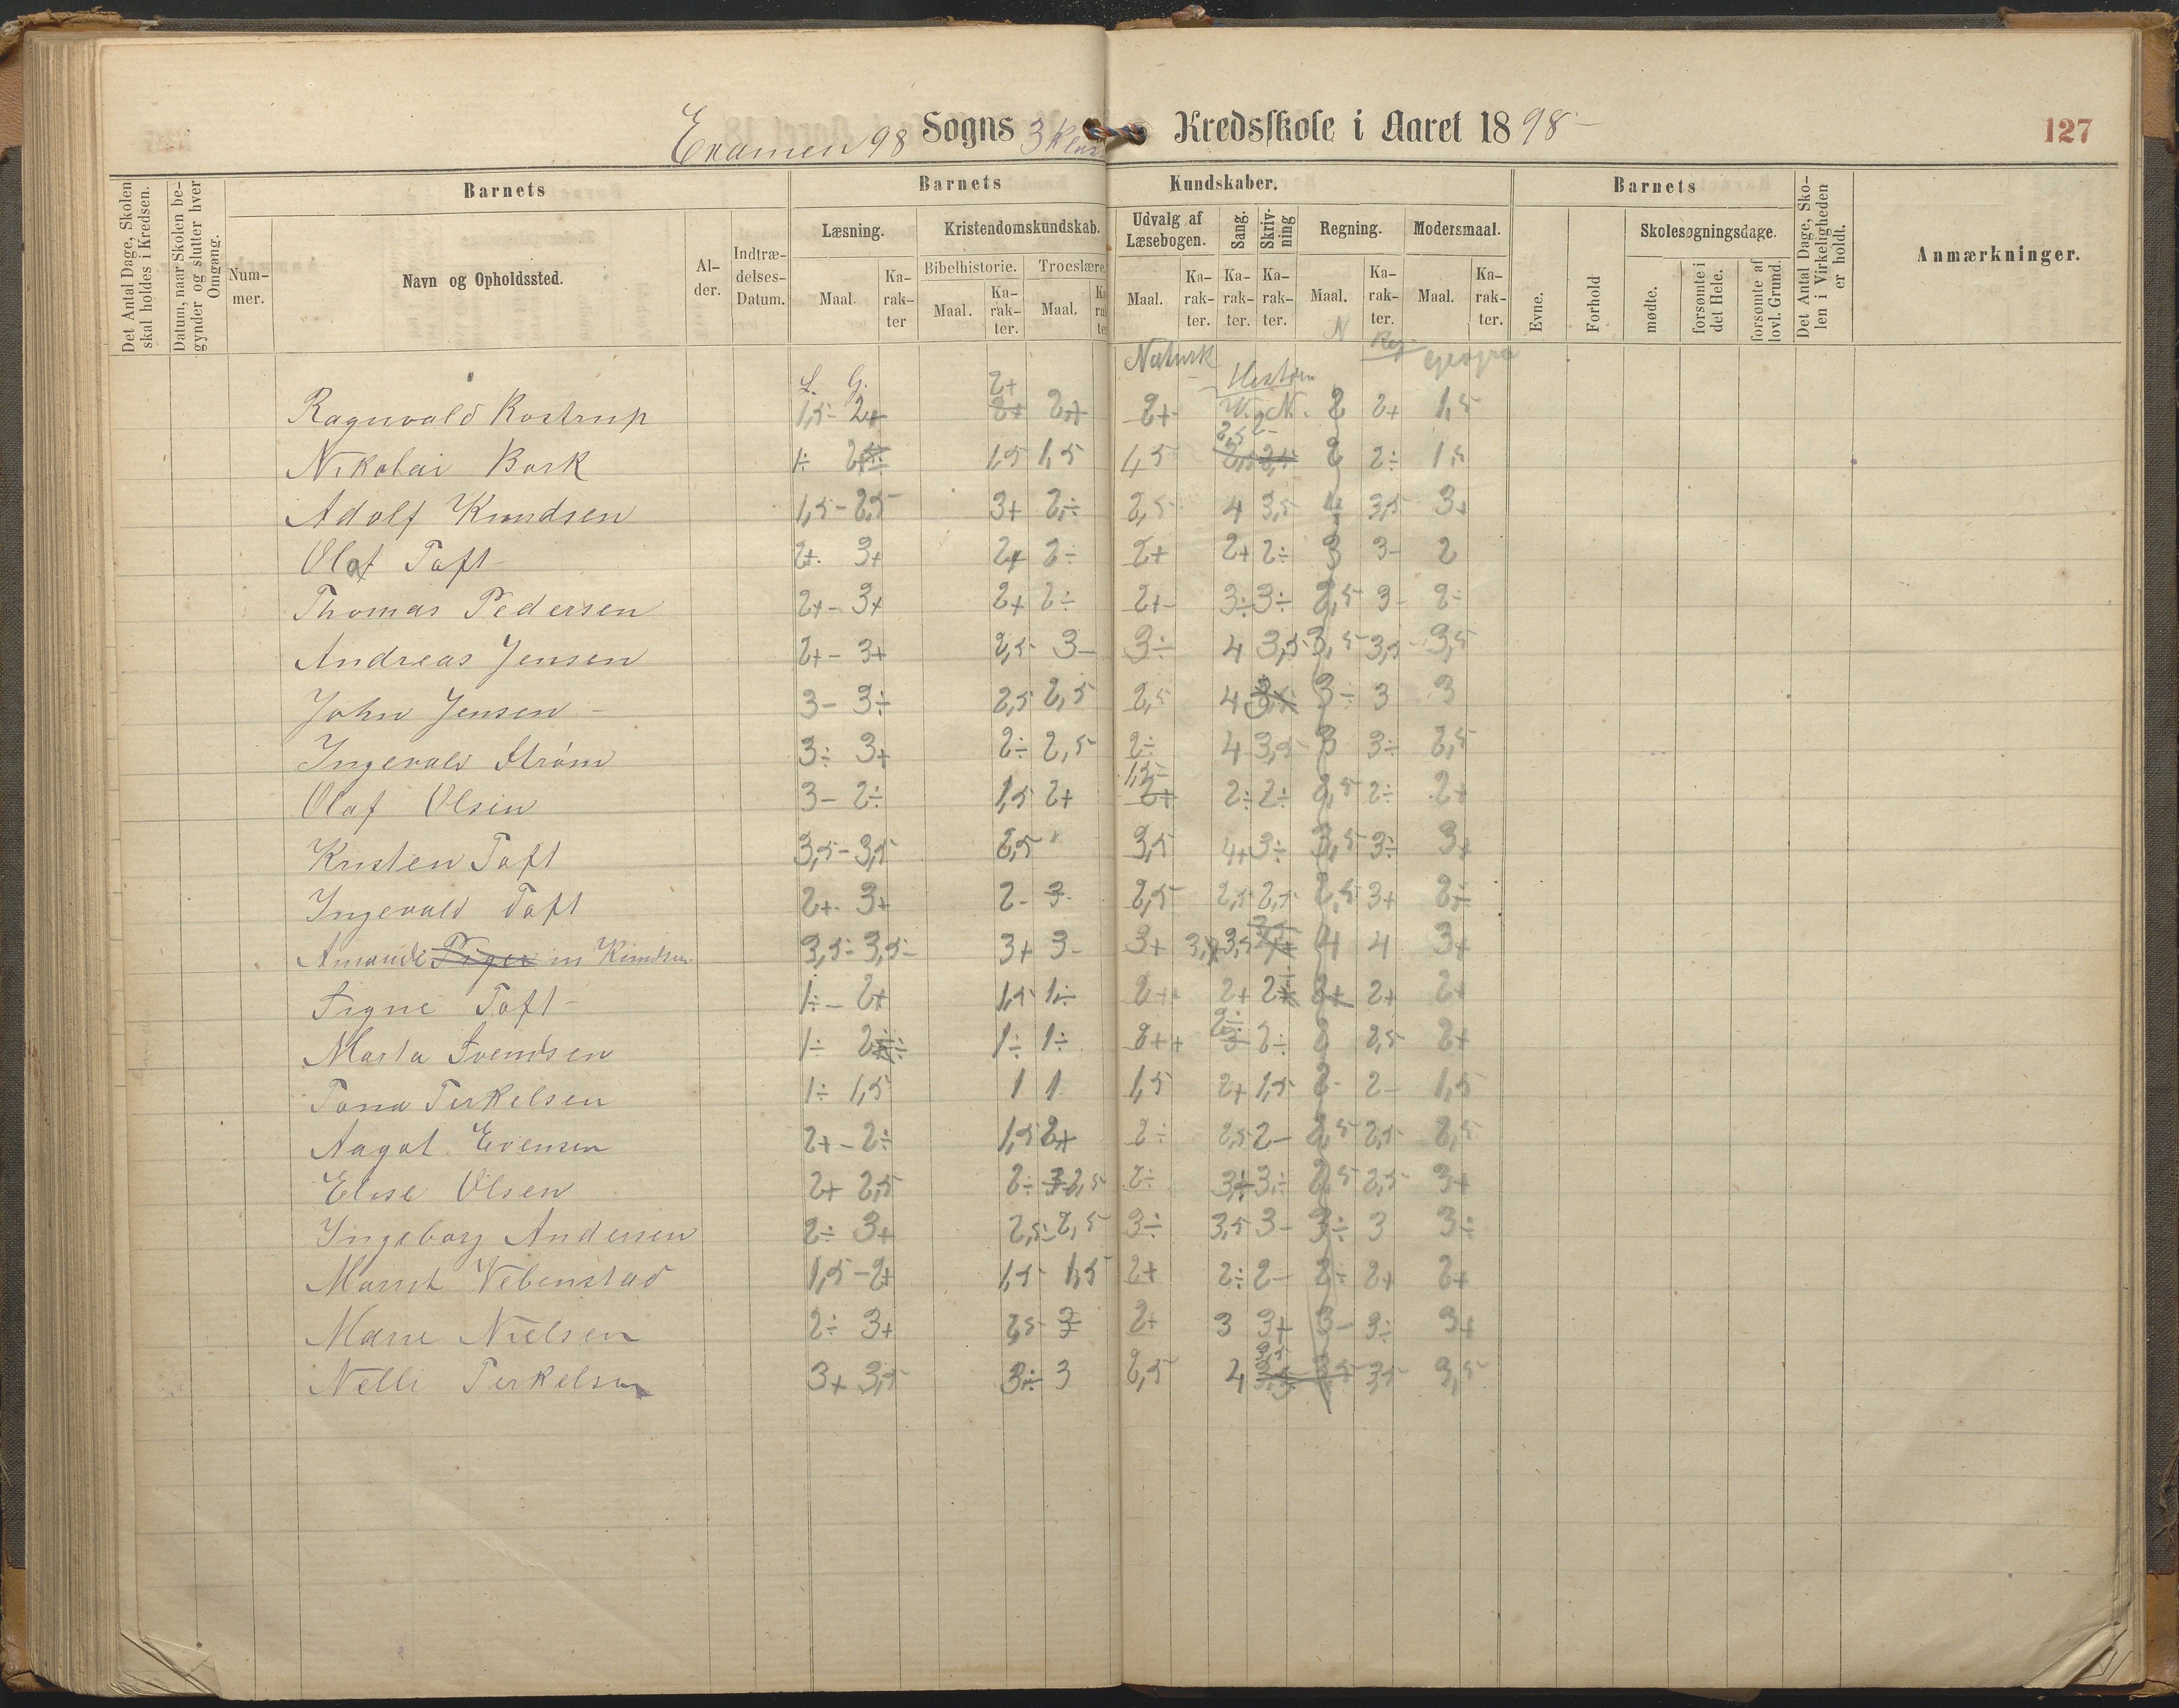 Examen 98 Sogns 3 Klas Kredsskole i Aaret 1898 -
127
Det Antal Dage, Skolen skal holdes i Kredsen.
Datum, naar Skolen begynder og slutter hver Omgang.
Barnets
Nummer.
Navn og Opholdssted.
Alder.
Indtrædelses-Datum.
Barnets Kundskaber.
Læsning.
Maal. Karakter
Kristendomskundskab.
Bibelhistorie. Troeslære.
Maal. Karakter. Maal.
Udvalg af Læsebogen.
Maal. Karakter.
Sang. Karakter.
Skrivning Karakter.
Regning.
Maal. Karakter.
Modersmaal.
Maal. Karakter.
Barnets
Evne.
Forhold
Skolesøgningsdage.
mødte.
forsømte i det Hele.
forsømte af lovl. Grund.
Det Antal Dage, Skolen i Virkeligheden er holdt.
Anmærkninger.
N Reg. Naturk
L. G. 2+
Ragnvald Rostrup 1,5- 2+ 2+ 2+ 2+ V. N. 2 2+ 1,5
Nikolai Bork 1÷ 1,5 1,5 1,5 2 2÷ 1,5
Adolf Knudsen 1,5- 2,5 3+ 2÷ 2,5 4 3,5 4 3,5 3+
Olaf Toft 2+ 3+ 2+ 2÷ 2+ 2+ 2÷ 3 3- 2
Thomas Pedersen 2+- 3+ 2+ 2÷ 2+- 3÷ 3÷ 2,5 3- 2÷
Andreas Jensen 2+- 3+ 2,5- 3- 3÷ 4 3,5 3,5 3,5 3,5
John Jensen 3- 3÷ 2,5 2,5 2,5 4 3÷ 3 3
Ingevald Strøm 3÷ 3+ 2÷ 2,5 2÷ 4 3,5- 3 3÷ 2,5
Olaf Olsen 3- 2÷ 1,5 2+ 1,5 2+ 2÷ 2÷ 2,5 2÷ 2+
Kristen Toft 3,5- 3,5 2,5 " 3,5 4+ 3÷ 3,5 3÷ 3+
Ingevald Toft 2+- 3+ 2- 3- 2,5 2,5 2,5 2,5 3+ 2÷
Amanda Piger Knudsen 3,5÷ 3,5- 3+ 3- 3+ 3,5 4 4 3+
Signe Toft 1÷- 2+ 1,5 1÷ 2++ 2+ 2÷ 2+ 2+ 2+
Marta Svendsen 1÷ 2÷ 1÷ 1÷ 2++ 2÷ 2÷ 2 2,5 2+
Tona Terkelsen 1÷ 1,5 1 1 1,5 2+ 1,5 2- 2- 1,5
Aagot Evensen 2+- 2÷ 1,5 2+ 2÷ 2,5 2- 2,5 2,5 2,5
Elise Olsen 2+ 2,5 2÷ 3 2,5 2÷ 3÷ 3÷ 2,5 2,5 3+
Ingeborg Andersen 2÷ 3+ 2,5÷ 2,5 3÷ 3,5 3- 3÷ 3 3÷
Marsit Vebenstad 1,5- 2+ 1,5- 1,5 2+ 2÷ 2- 2÷ 2+ 2+
Marie Nielsen 2÷ 3+ 2,5- 3 2+ 3 3+ 3- 3÷ 3+
Nelli Terkelsen 3+ 3,5 3÷ 3 2,5 4 3,5 3,5 3,5 3,5